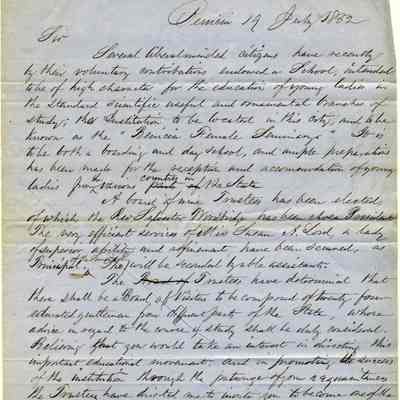 Benicia 19 July 1852
Sir
Several liberal minded citizens have recently
by their voluntary contributions endowed a School, intended
to be of high character for the education of young ladies in
the Standard Scientific useful and ornamental branches of
study; the Institution to be located in this city, and to be
known as the "Benicia Female Seminary" It is
to be both a boarding and day school, and ample preparations
has been made for the reception and accommodation of young
ladies from the various counties in the State
A board of nine Trustees has been elected
of which the Rev Sylvester Woodbridge has been chosen President
The very efficient services of Miss Susan A. Lord a lady
of superior ability and refinement have been secured, as
Principal, She will be seconded by able assistants.
The Board of Trustees have determined that
there shall be a Board of Visitors to be composed of twenty four
educated gentlemen from different parts of the State, whose
advice in regard to the course of study shall be duly considered.
Believing that you would take an interest in directing this
important educational movement, and in promoting the success
of the institution through the patronage of your acquaintances
the Trustees have directed me to invite you to become one of the